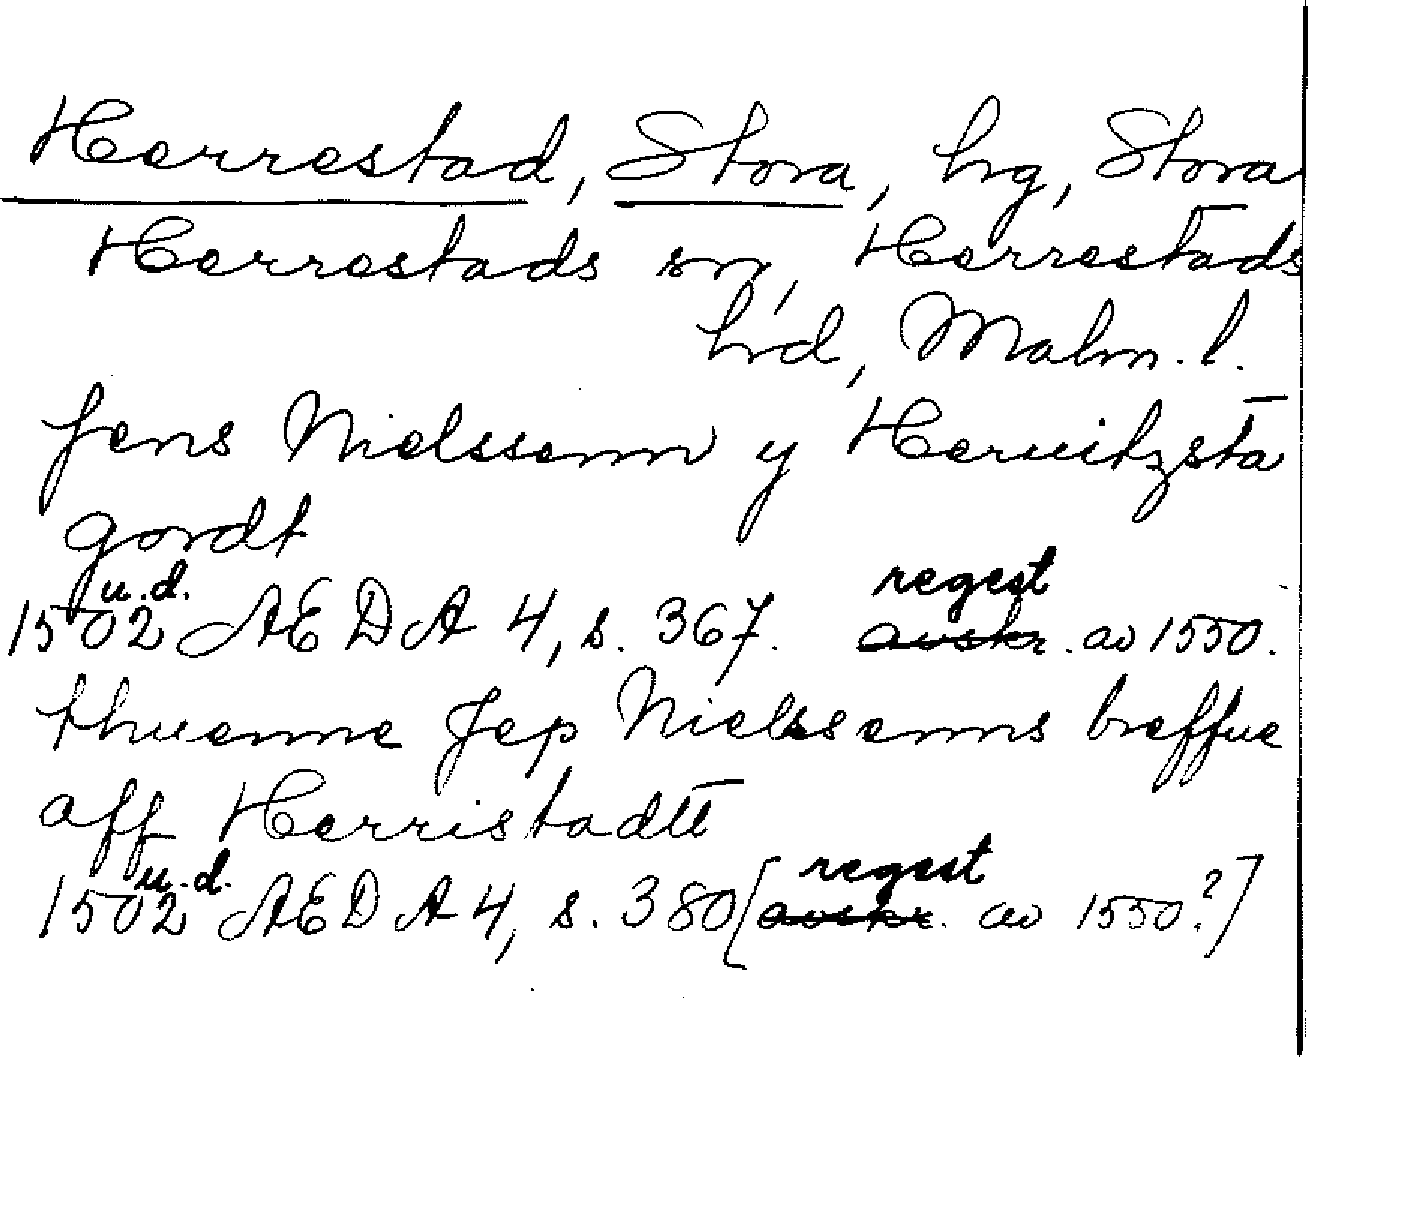 Herrestad, Stora, hrg, Stora
Herrestads sn, Herrestads
hrd, Malm. l.
Jens Nielssenn y Heruitzsta
gordt
u.d. regest
1502 AEDA 4, s. 367. avskr. av 1550.
thuenne Jep Nielssenns breffue
aff Herristadtt
u.d. regest
1502 AEDA 4, s. 380 [avskr. av 1550?]